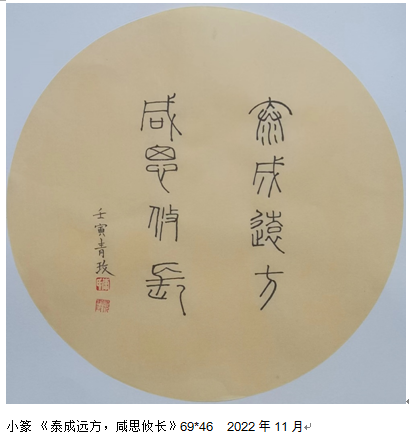 泰成遠方
咸思攸長
壬寅青
小篆 《泰成远方，咸思攸长》69*46 2022年11月